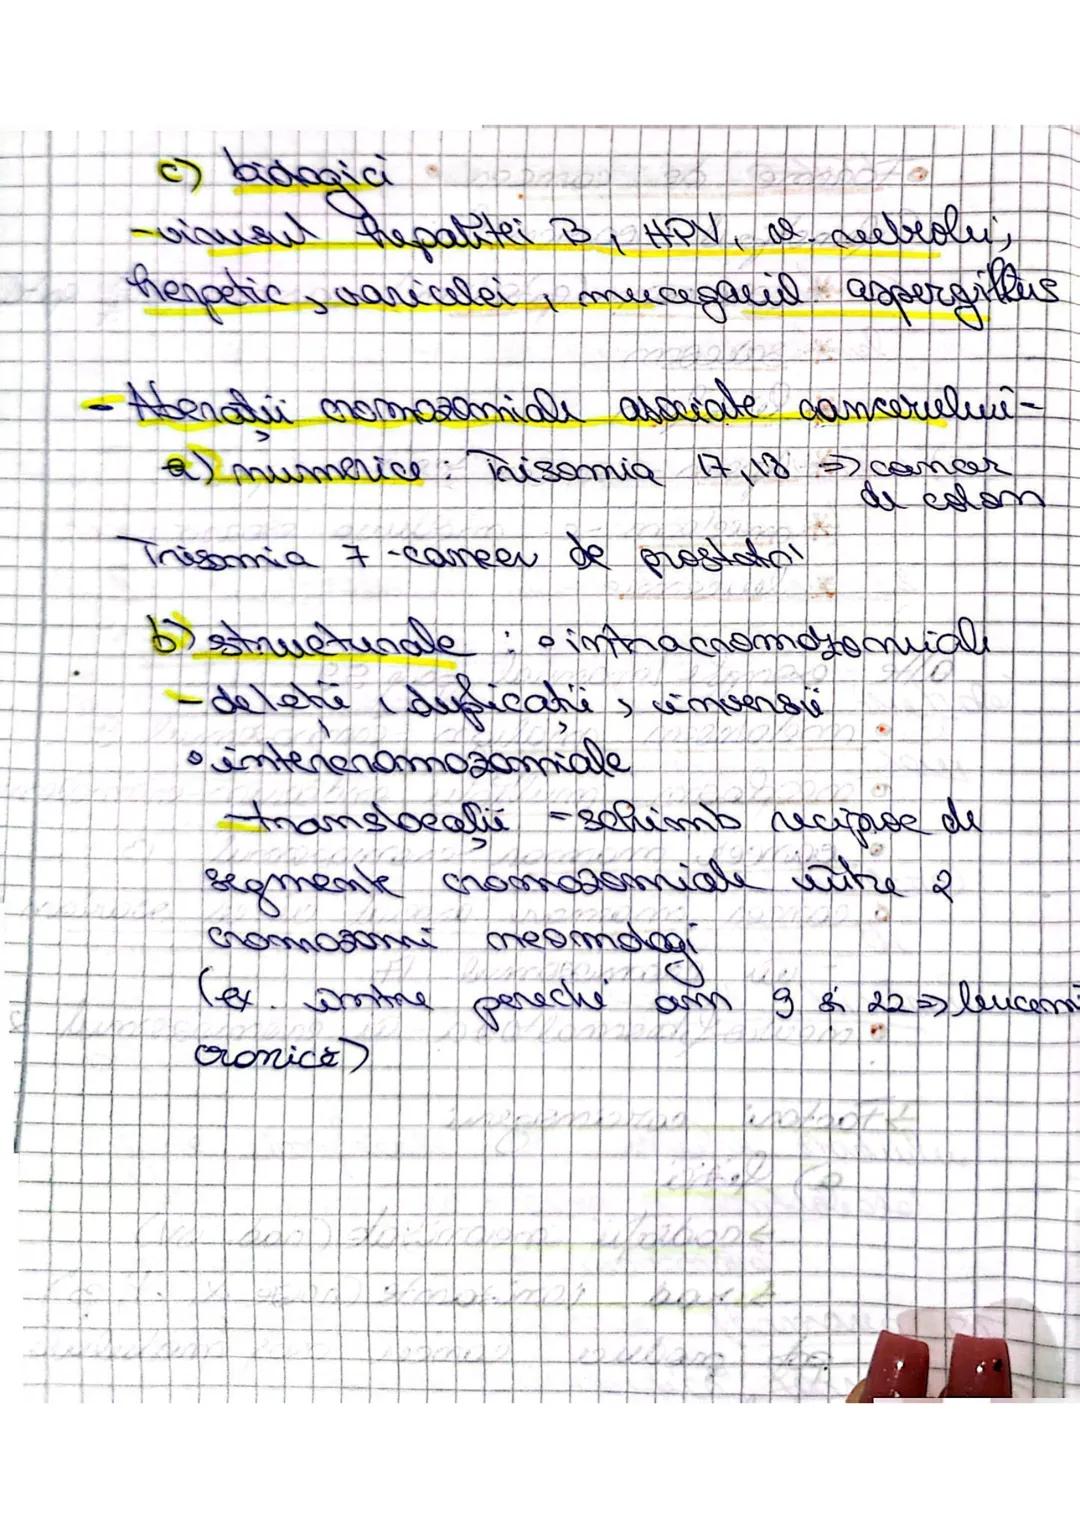 c) biologici
-virusul hepatitei B, HPV, v. nebrolui,
herpetic, varicelei, mucegaiul aspergillus
- Aberații cromozomiale asociate cancerului-
a) numerice: Trisomia 17,18 => cancer
de colon
Trisomia 7 -cancer de prostată
b) structurale : • intracromozomiale
- deleții, duplicații, inversii
• intercromozomiale
-translocații -schimb reciproc de
segmente cromozomiale între 2
cromozomi neomologi
(ex. între perechi am 9 și 22 => leucemi
cronică)